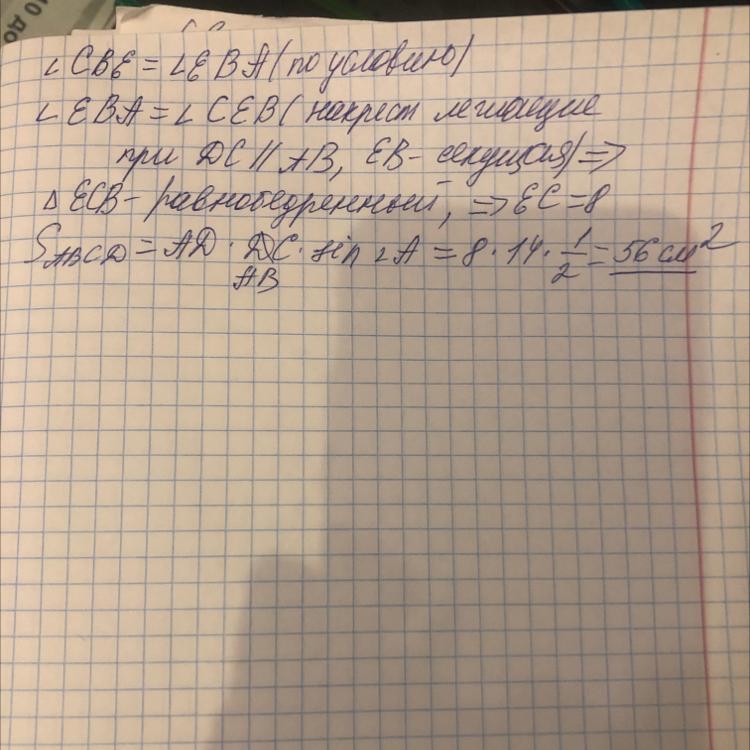 10 до
∠CBE = ∠EBA (по условию)
∠EBA = ∠CEB (накрест лежащие
при DC || AB, EB - секущая) ⇒
△ECB - равнобедренный, ⇒ EC = 8
S_ABCD = AD · DC · sin ∠A = 8 · 14 · 1/2 = 56 см²
AB